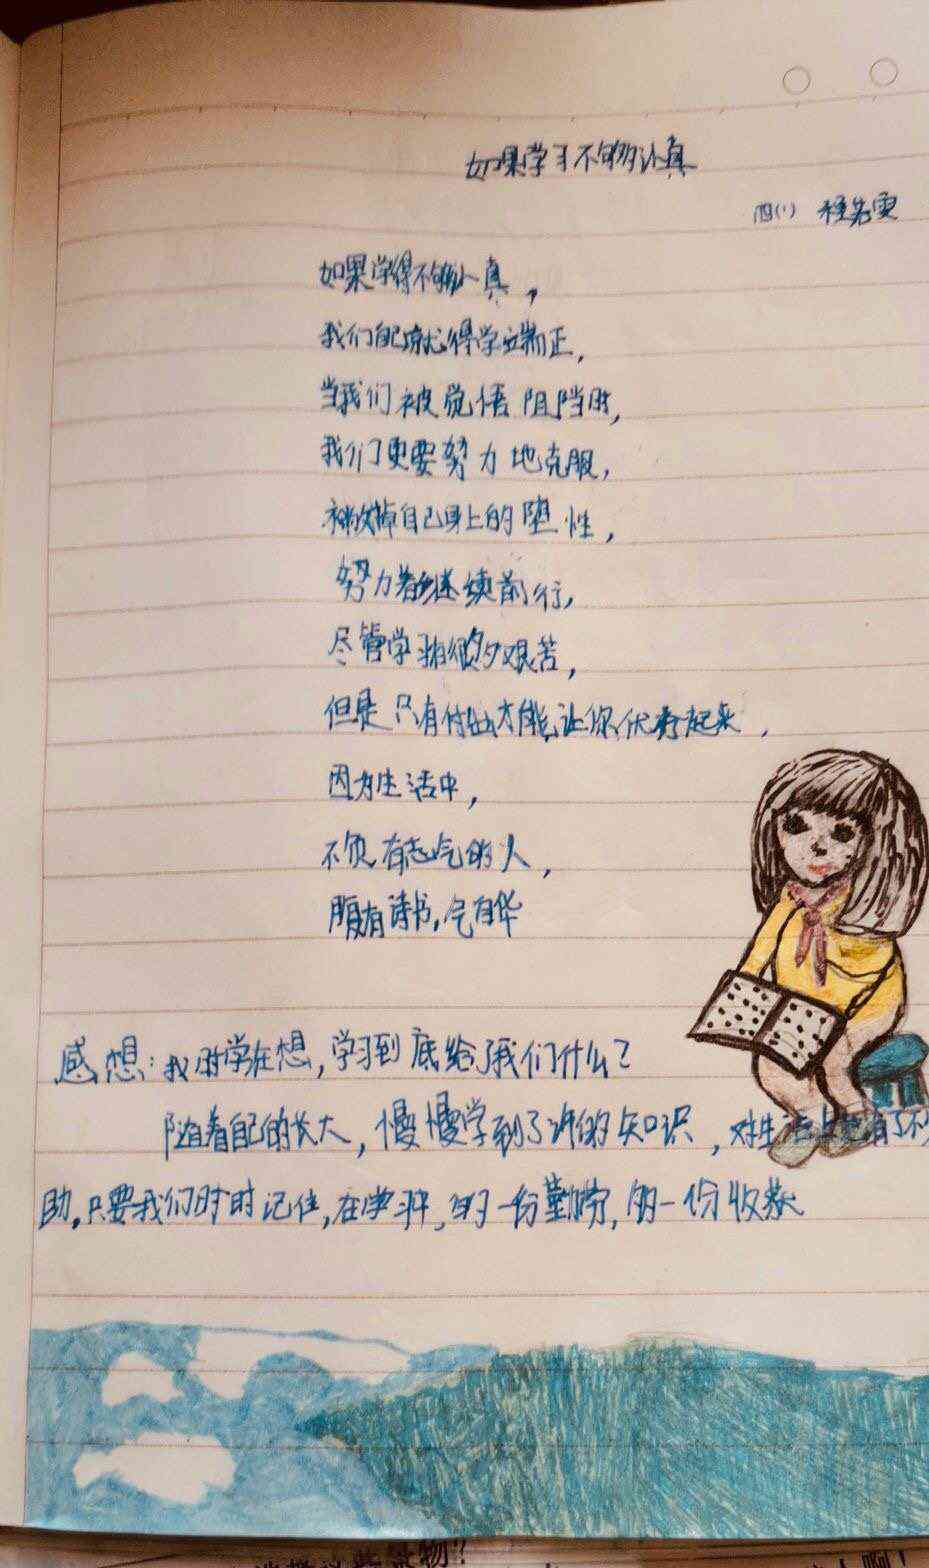 如果学习不够认真
四(1) 程若雯
如果学得不够认真，
我们就得学端正，
当我们被觉悟阻挡时，
我们更要努力地克服，
掉自己身上的惰性，
努力着继续前行，
尽管学习很艰苦，
但是只有付出才能让你优秀起来，
因为生活中，
不负有志气的人，
腹有诗书，气自华
感想：我时常在想，学习到底给了我们什么？
随着自己的长大，慢慢学到了许多的知识，对生活上也有了不少
助，只要我们时时记住，在学习中，的一份勤劳，的一份收获
消 物？
啊！